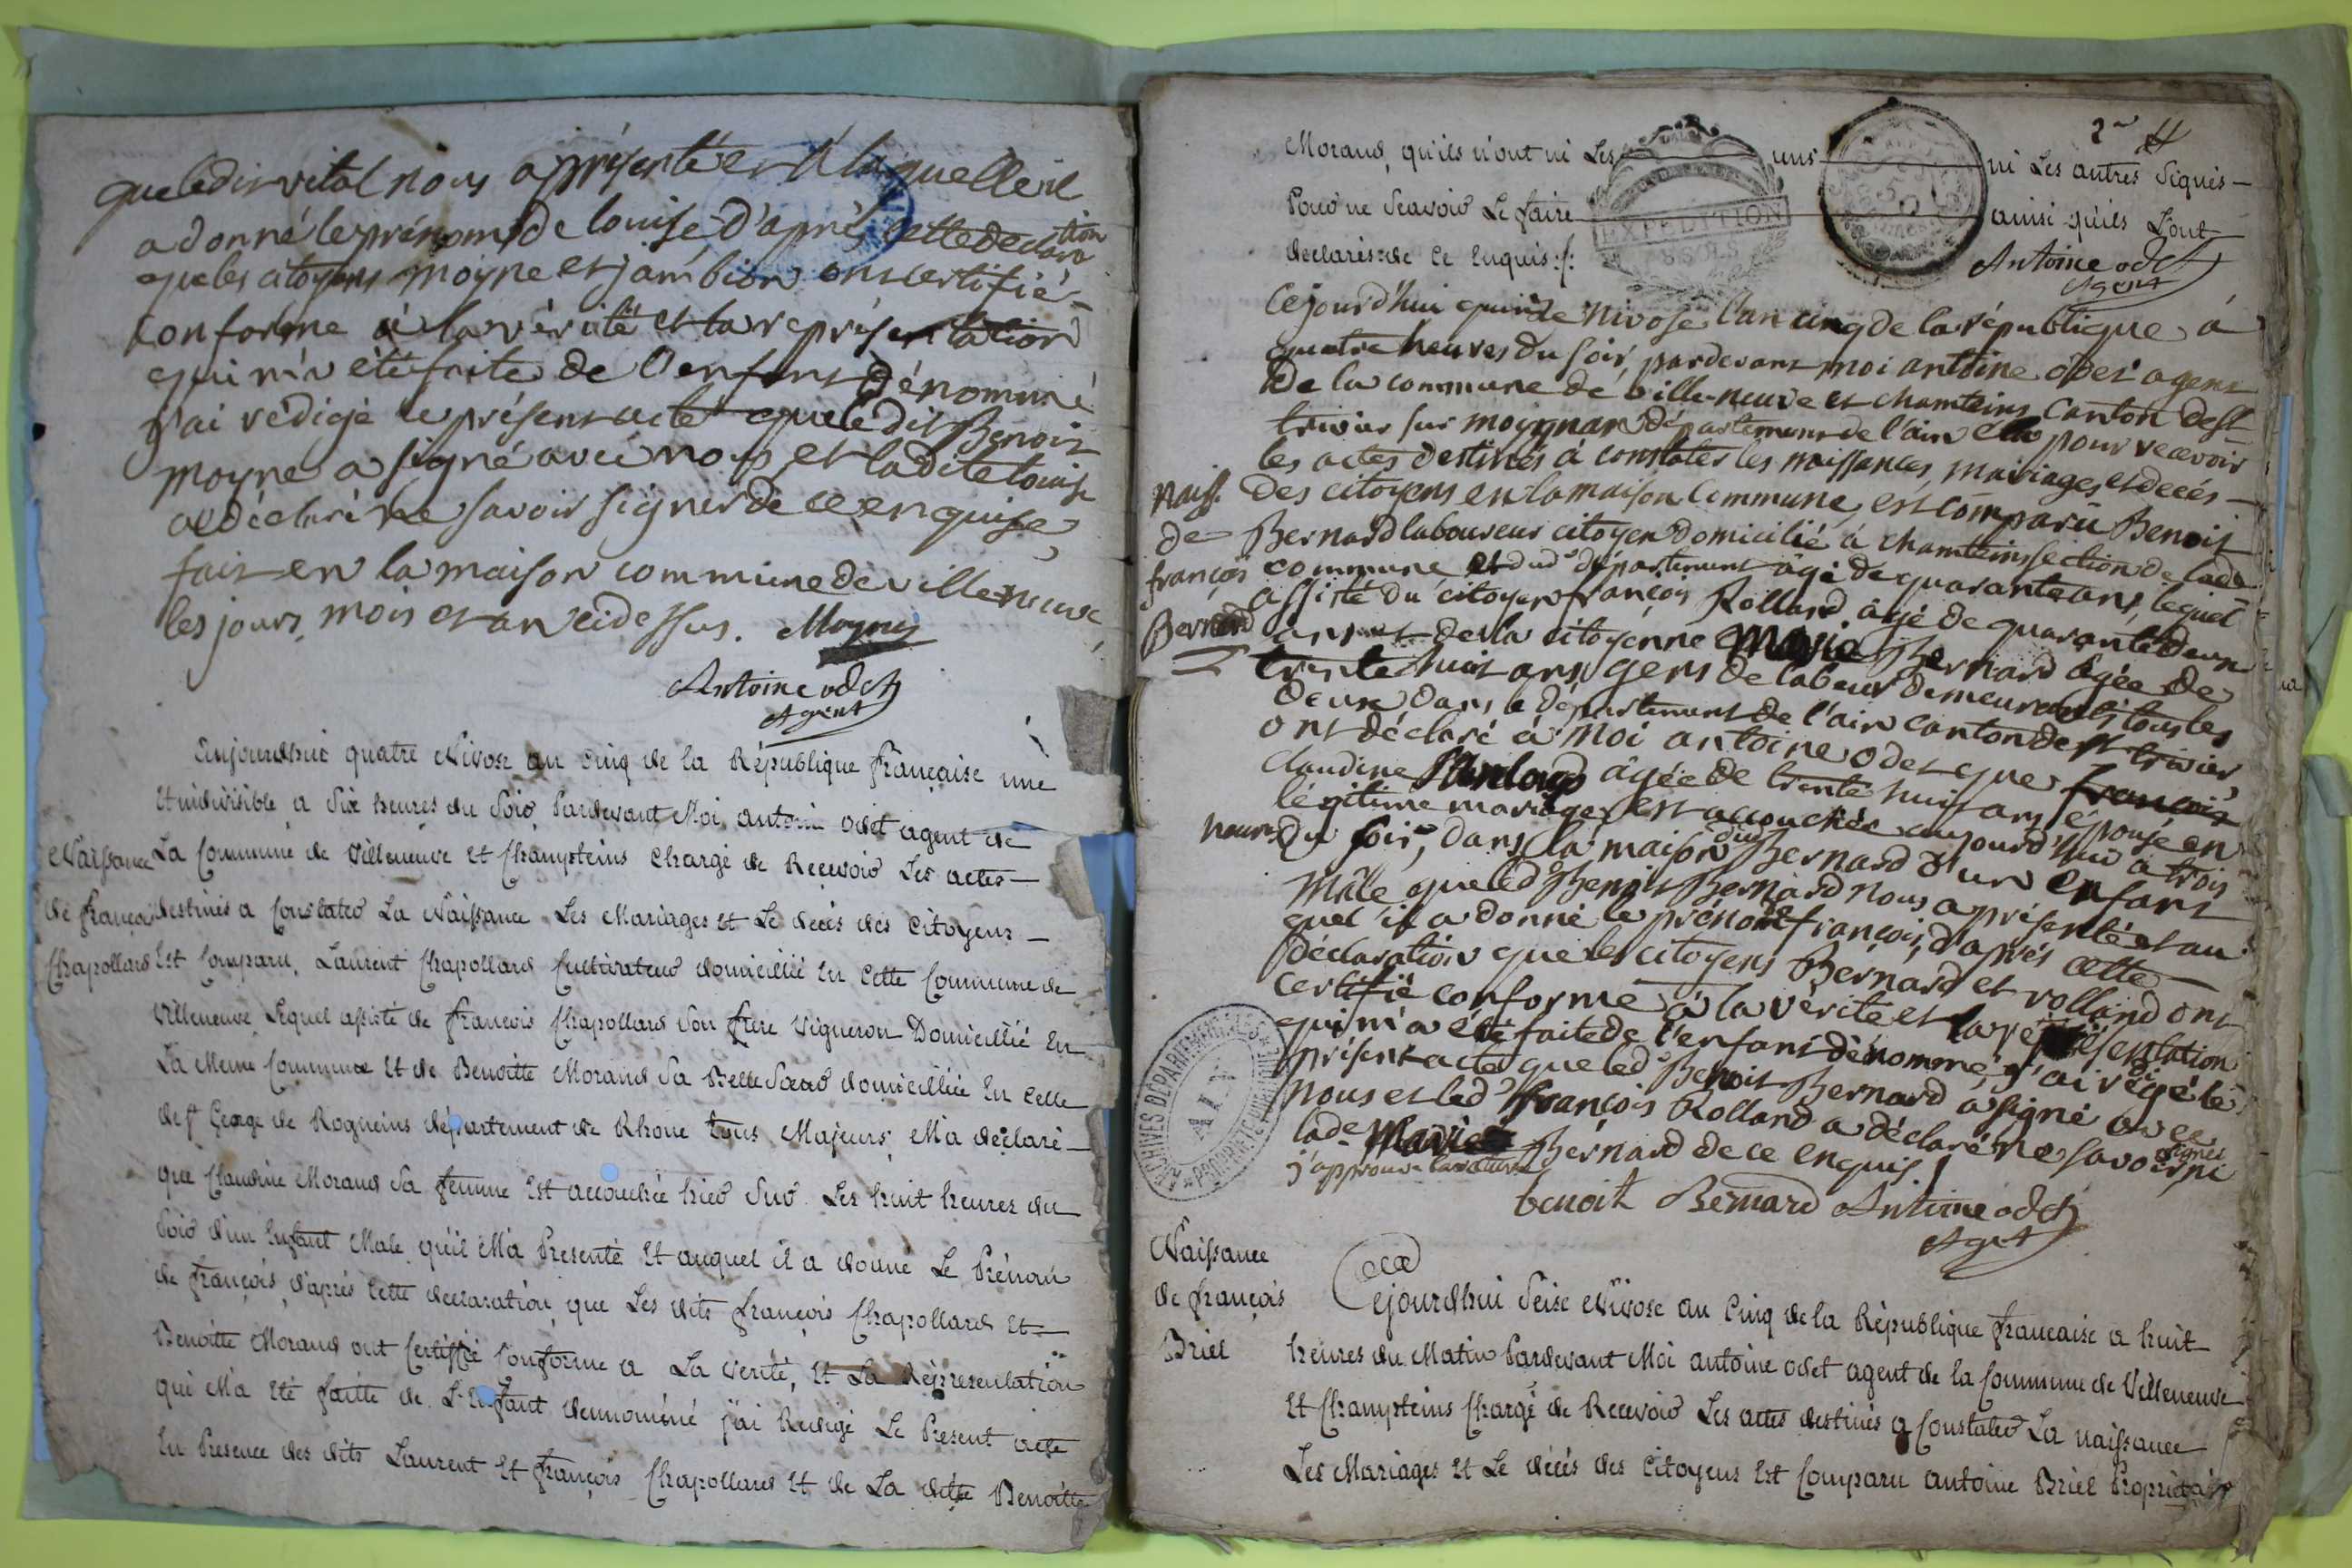 que ledit vital nous a présenté et à laquelle il
a donné le prénom de louise d'après cette declaration
que les citoyens moyne et jambion ont certifié
conforme à la vérité et la représentation
qui m'a été faite de l'enfant dénommé
j'ai rédigé le présent acte que ledit Benoit
moyne a signé avec nous et ladite louise
a déclaré ne savoir signer de ce enquise
fait en la maison commune de villeneuve
les jours, mois et an cidessus. Moyne
Antoine odet
Agent
Aujourdhui quatre Nivose an cinq de la République française une
Et indivisible a Six heures du Soir Pardevant Moi antoine odet agent de
La Commune de Villeneuve Et Champteins Chargé de Recevoir Les actes
destinés a Constater La Naissance Les Mariages Et Le décès des Citoyens
Est Comparu, Laurent Chapollard Cultivateur domicillié En Cette Commune de
Villeneuve Lequel assisté de françois Chapollard Son frere Vigneron Domicillié En
La Meme Commune Et de Benoitte Morand Sa Belle Sœur domicilliée En Celle
de St George de Rogneins département de Rhone tous Majeurs, M'a déclaré
que Claudine Morand Sa femme Est accouchée hier Sur Les huit heures du
Soir d'un Enfant Male qu'il M'a Presenté Et auquel il a donné Le Prénom
de françois, d'après Cette declaration que Les dits françois Chapollard Et
Benoitte Morand ont Certiffié Conforme a La Verité, Et La Répresentation
qui M'a Eté faitte de L'Enfant dennoméné j'ai Redigé Le Present acte
En Presence des dits Laurent Et françois Chapollard Et de La ditte Benoitte
Naissance
de françois
Chapollard
2
Morand, qu'ils n'ont ni Les uns ni Les autres Signés
Pour ne Seavoir Le faire ainsi qu'ils L'ont
declarés de Ce Enquis
EXPEDITION
8 SOLS
Antoine odet
Agent
Cejourd'hui quinze Nivose l'an cinq de la république à
quatre heures du soir, pardevant moi antoine odet agent
de la commune de villeneuve et chamteins canton de St
trivier sur moignan département de l'ain élu pour recevoir
les actes destinés à constater les naissances, mariages et decés
des citoyens en la maison Commune, est comparu Benoit
Bernard laboureur citoyen domicilié à chamteins section de lade
commune et dud département agé de quarante ans, lequel
assisté du citoyen françois Rolland âgé de quarante deux
ans et de la citoyenne Marie Bernard âgée de
trente huit ans gens de labeur demeurants tous les
deux dans le département de l'ain canton de St trivier
ont déclaré à moi antoine odet que françois
claudine âgée de trente huit ans épouse en
légitime mariage est accouchée aujourd'hui à trois
heures du soir, dans la maison dud Bernard d'un enfant
mâle que led Benoit Bernard nous a présenté et au
quel il a donné le prénom de françois, d'après cette
déclaration que les citoyens Bernard et rolland ont
certifié conforme à la vérité et la représentation
qui m'a été faite de l'enfant dénommé, j'ai rédigé le
présent acte que led Benoit Bernard a signé avec
nous et led françois Rolland a déclaré ne savoir signer ni
lade Marie Bernard de ce enquis
j'approuve la rature
benoit Bernard Antoine odet
Agent
naiss.
de
françois
Bernard
ARCHIVES DEPARTEMENTALES
AIN
PROPRIETE PUBLIQUE
Naissance
de françois
Briel
Cejourdhui Seise Nivose an Cinq de la République francaise a huit
heures du Matin Pardevant Moi antoine odet agent de la Commune de Villeneuve
Et Champteins Chargé de Recevoir Les actes destinés a Constater La naissance
Les Mariages Et Le décés des Citoyens Est Comparu antoine Briel Propriétaire